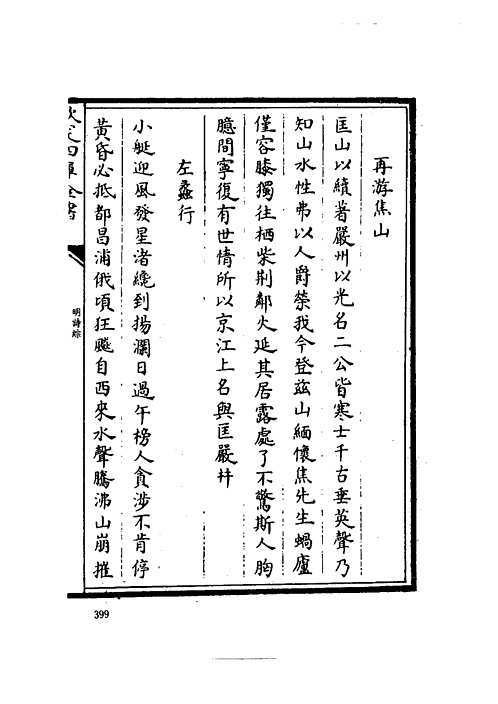 再游焦山
匡山以續著嚴州以光名二公皆寒士千古垂英聲乃
知山水性弗以人爵榮我今登兹山緬懷焦先生蝸廬
僅容膝獨往栖柴荆鄰火延其居露處了不驚斯人胸
臆間寧復有世情所以京江上名與匡嚴并
左蠡行
小艇迎風發星渚纔到揚瀾日過午榜人貪涉不肯停
黃昏必抵都昌浦俄頃狂飈自西來水聲騰沸山崩摧
欽定四庫全書
明詩綜
399